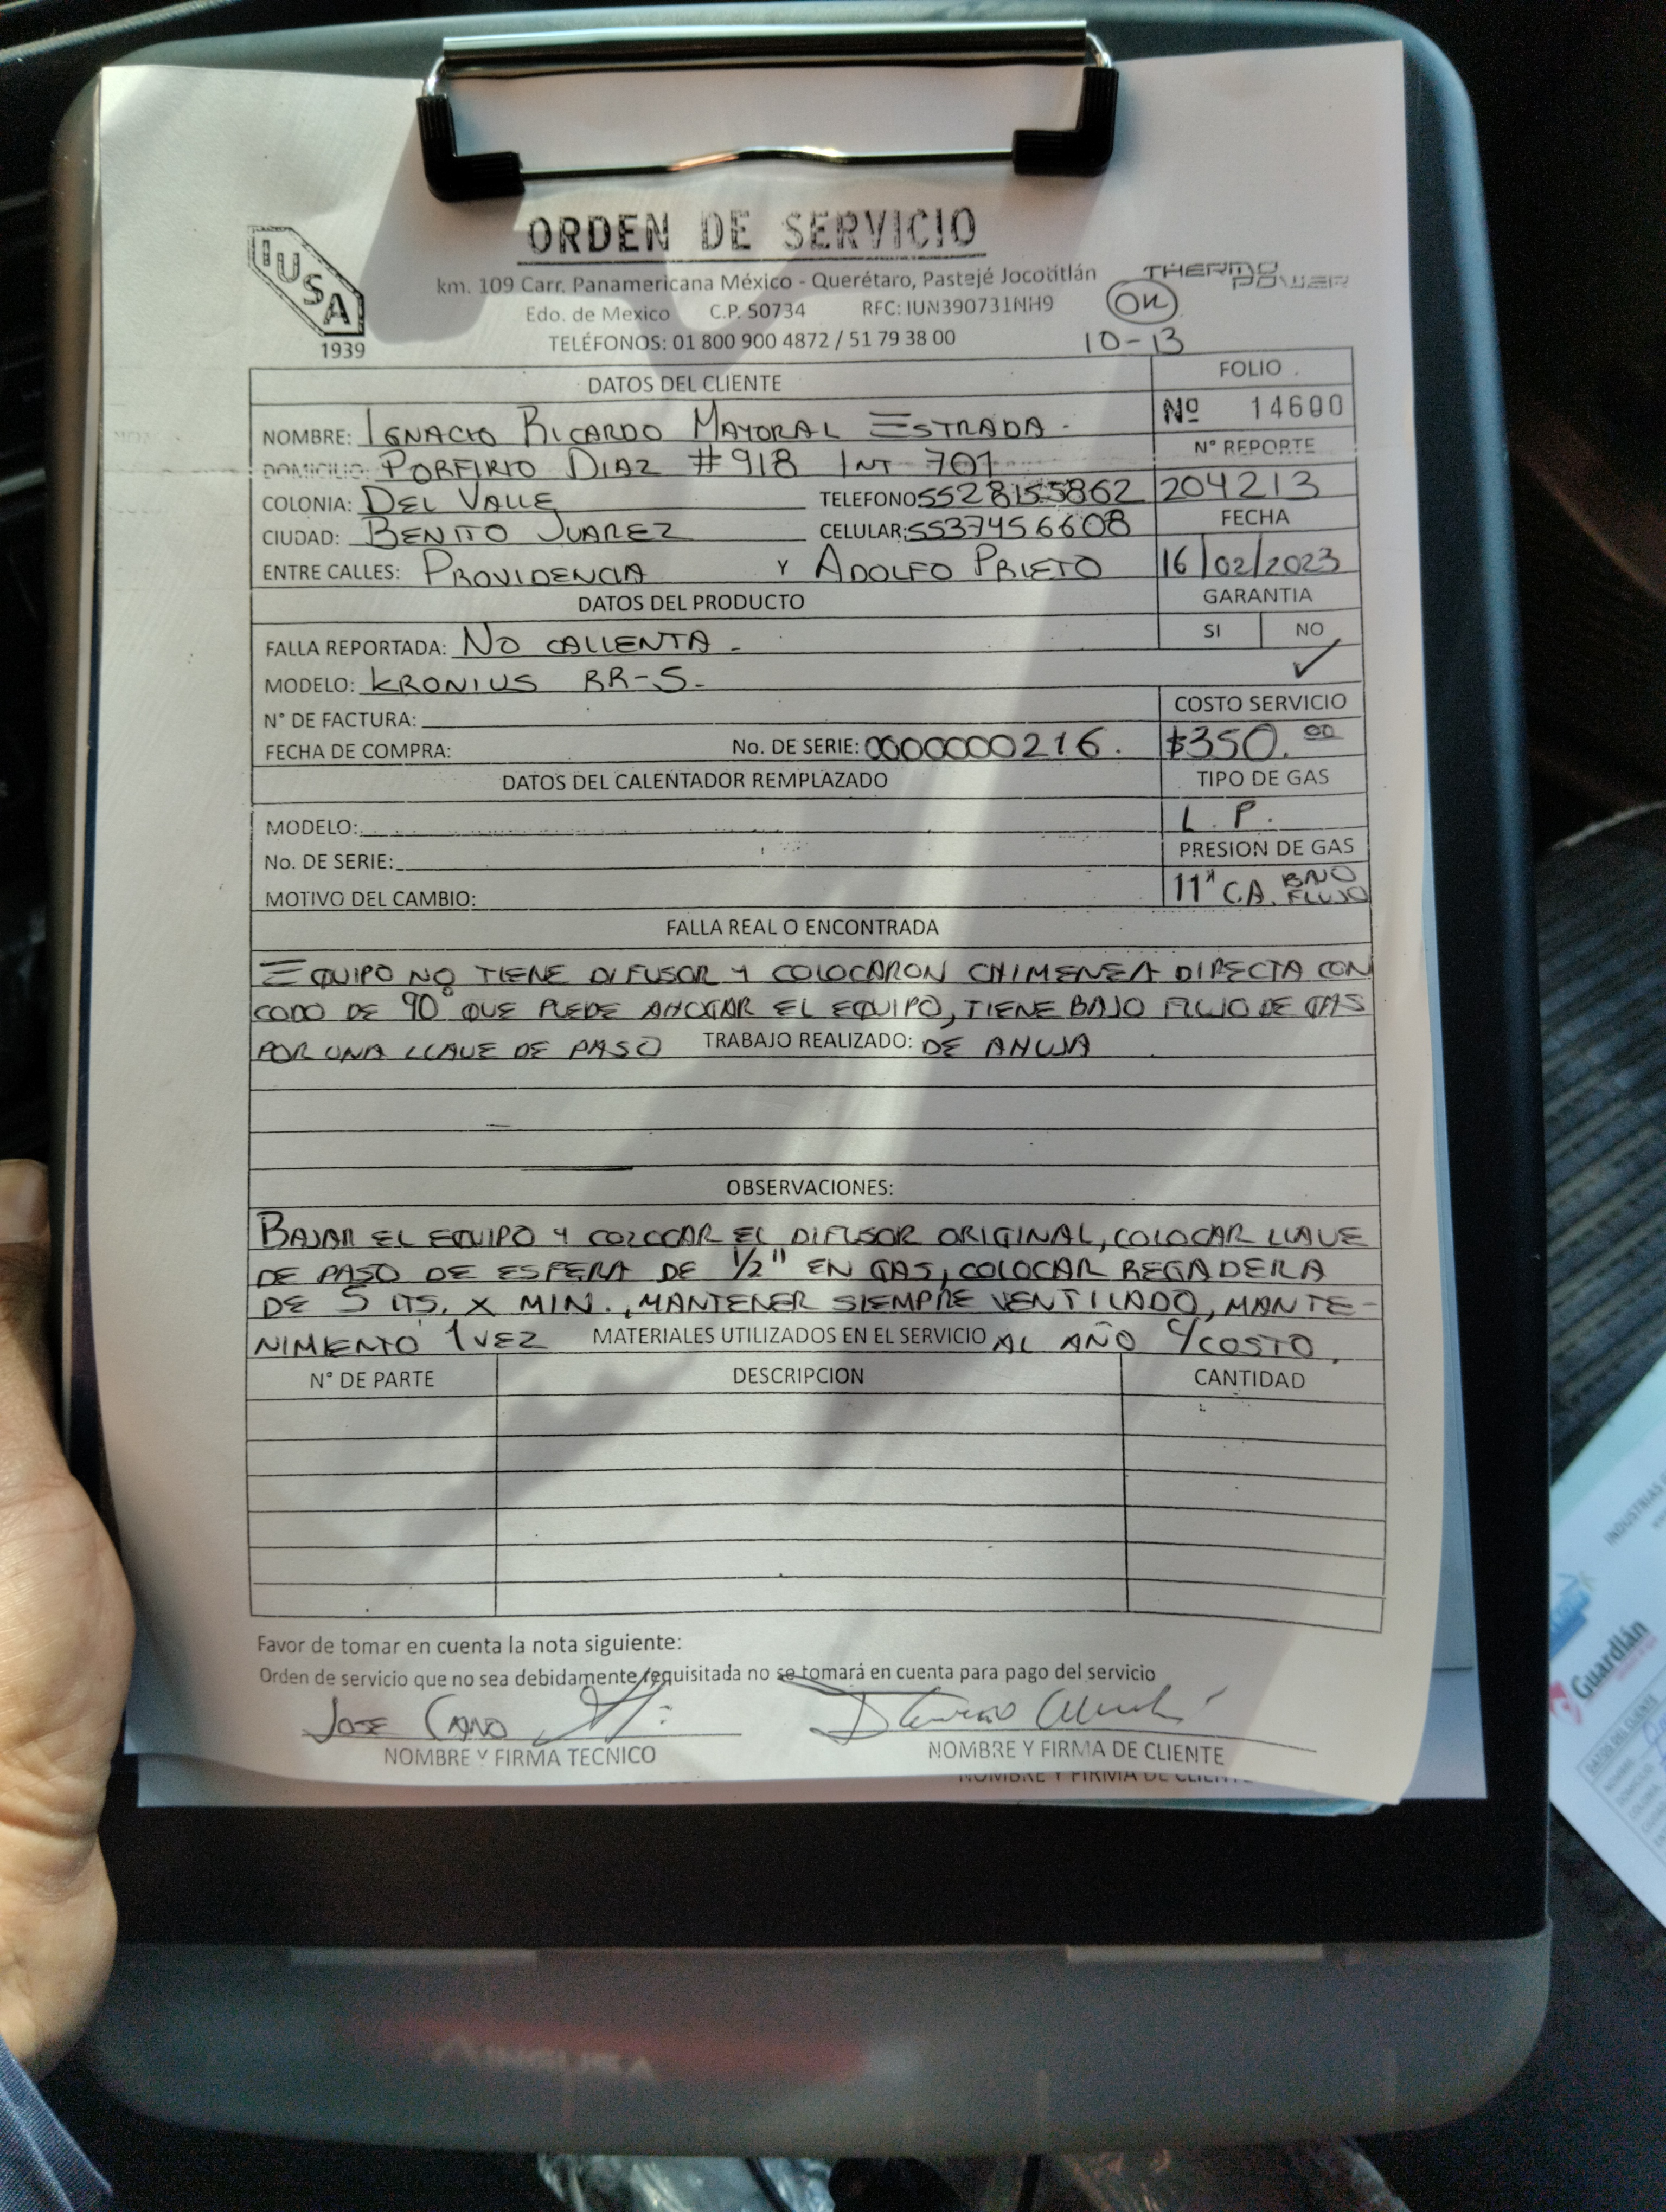 ORDEN DE SERVICIO
IUSA
1939
km. 109 Carr. Panamericana México - Querétaro, Pastejé Jocotitlán
THERMO POWER
Edo. de Mexico C.P. 50734 RFC: IUN390731NH9
OK
TELÉFONOS: 01 800 900 4872 / 51 79 38 00
10-13
DATOS DEL CLIENTE
FOLIO
Nº 14600
NOMBRE: IGNACIO RICARDO MAYORAL ESTRADA.
N° REPORTE
DOMICILIO: PORFIRIO DIAZ #918 INT 701
204213
COLONIA: DEL VALLE TELEFONO: 5528155862
FECHA
CIUDAD: BENITO JUAREZ CELULAR: 5537456608
16/02/2023
ENTRE CALLES: PROVIDENCIA Y ADOLFO PRIETO
DATOS DEL PRODUCTO
GARANTIA
SI NO
✓
FALLA REPORTADA: NO CALIENTA.
MODELO: KRONIUS RR-S.
COSTO SERVICIO
N° DE FACTURA:
$350.00
FECHA DE COMPRA: No. DE SERIE: 0000000216.
DATOS DEL CALENTADOR REMPLAZADO
TIPO DE GAS
L.P.
MODELO:
PRESION DE GAS
No. DE SERIE:
11" C.A. BAJO FLUJO
MOTIVO DEL CAMBIO:
FALLA REAL O ENCONTRADA
EQUIPO NO TIENE DIFUSOR Y COLOCARON CHIMENEA DIRECTA CON
CODO DE 90° QUE PUEDE AHOGAR EL EQUIPO, TIENE BAJO FLUJO DE GAS
POR UNA LLAVE DE PASO TRABAJO REALIZADO: DE AHUJA
OBSERVACIONES:
BAJAR EL EQUIPO Y COLOCAR EL DIFUSOR ORIGINAL, COLOCAR LLAVE
DE PASO DE ESFERA DE 1/2" EN GAS, COLOCAR REGADERA
DE 5 LTS. X MIN., MANTENER SIEMPRE VENTILADO, MANTE-
NIMIENTO 1 VEZ MATERIALES UTILIZADOS EN EL SERVICIO AL AÑO C/COSTO.
N° DE PARTE DESCRIPCION CANTIDAD
Favor de tomar en cuenta la nota siguiente:
Orden de servicio que no sea debidamente requisitada no se tomará en cuenta para pago del servicio
JOSE CANO
NOMBRE Y FIRMA TECNICO NOMBRE Y FIRMA DE CLIENTE
NOMBRE Y FIRMA DE CLIENTE
INGUSA
Guardián
DATOS DEL CLIENTE
NOMBRE
DOMICILIO
COLONIA